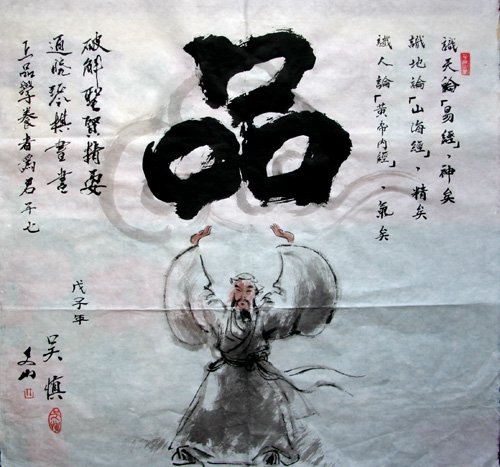 識天論「易經」、神矣
識地論「山海經」、精矣
識人論「黃帝內經」、氣矣
品
破解聖賢精要
通曉琴棋書畫
上品學養者為君子也
戊子年
吳慎